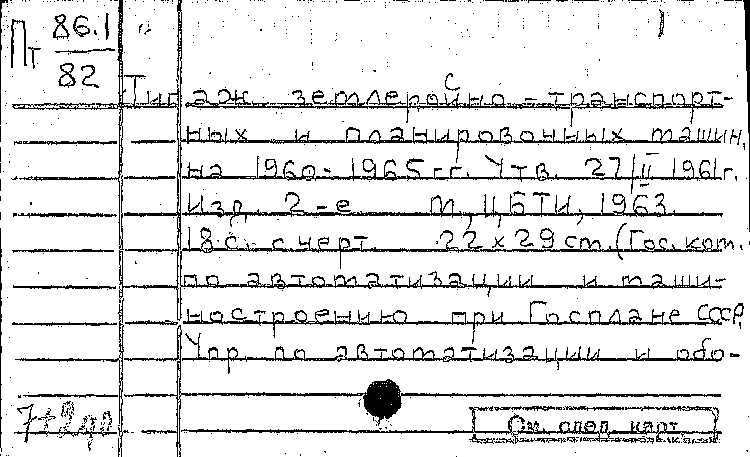 Пт 86.1
82
Типаж землеройно-транспорт-
ных и планировочных машин
на 1960-1965 гг. Утв. 27/II 1961г.
Изд. 2-е М., ЦБТИ, 1963.
18 с. с черт. 22 х 29 см. (Гос. ком.
по автоматизации и маши-
ностроению при Госплане СССР.
Упр. по автоматизации и обо-
См. след. карт.